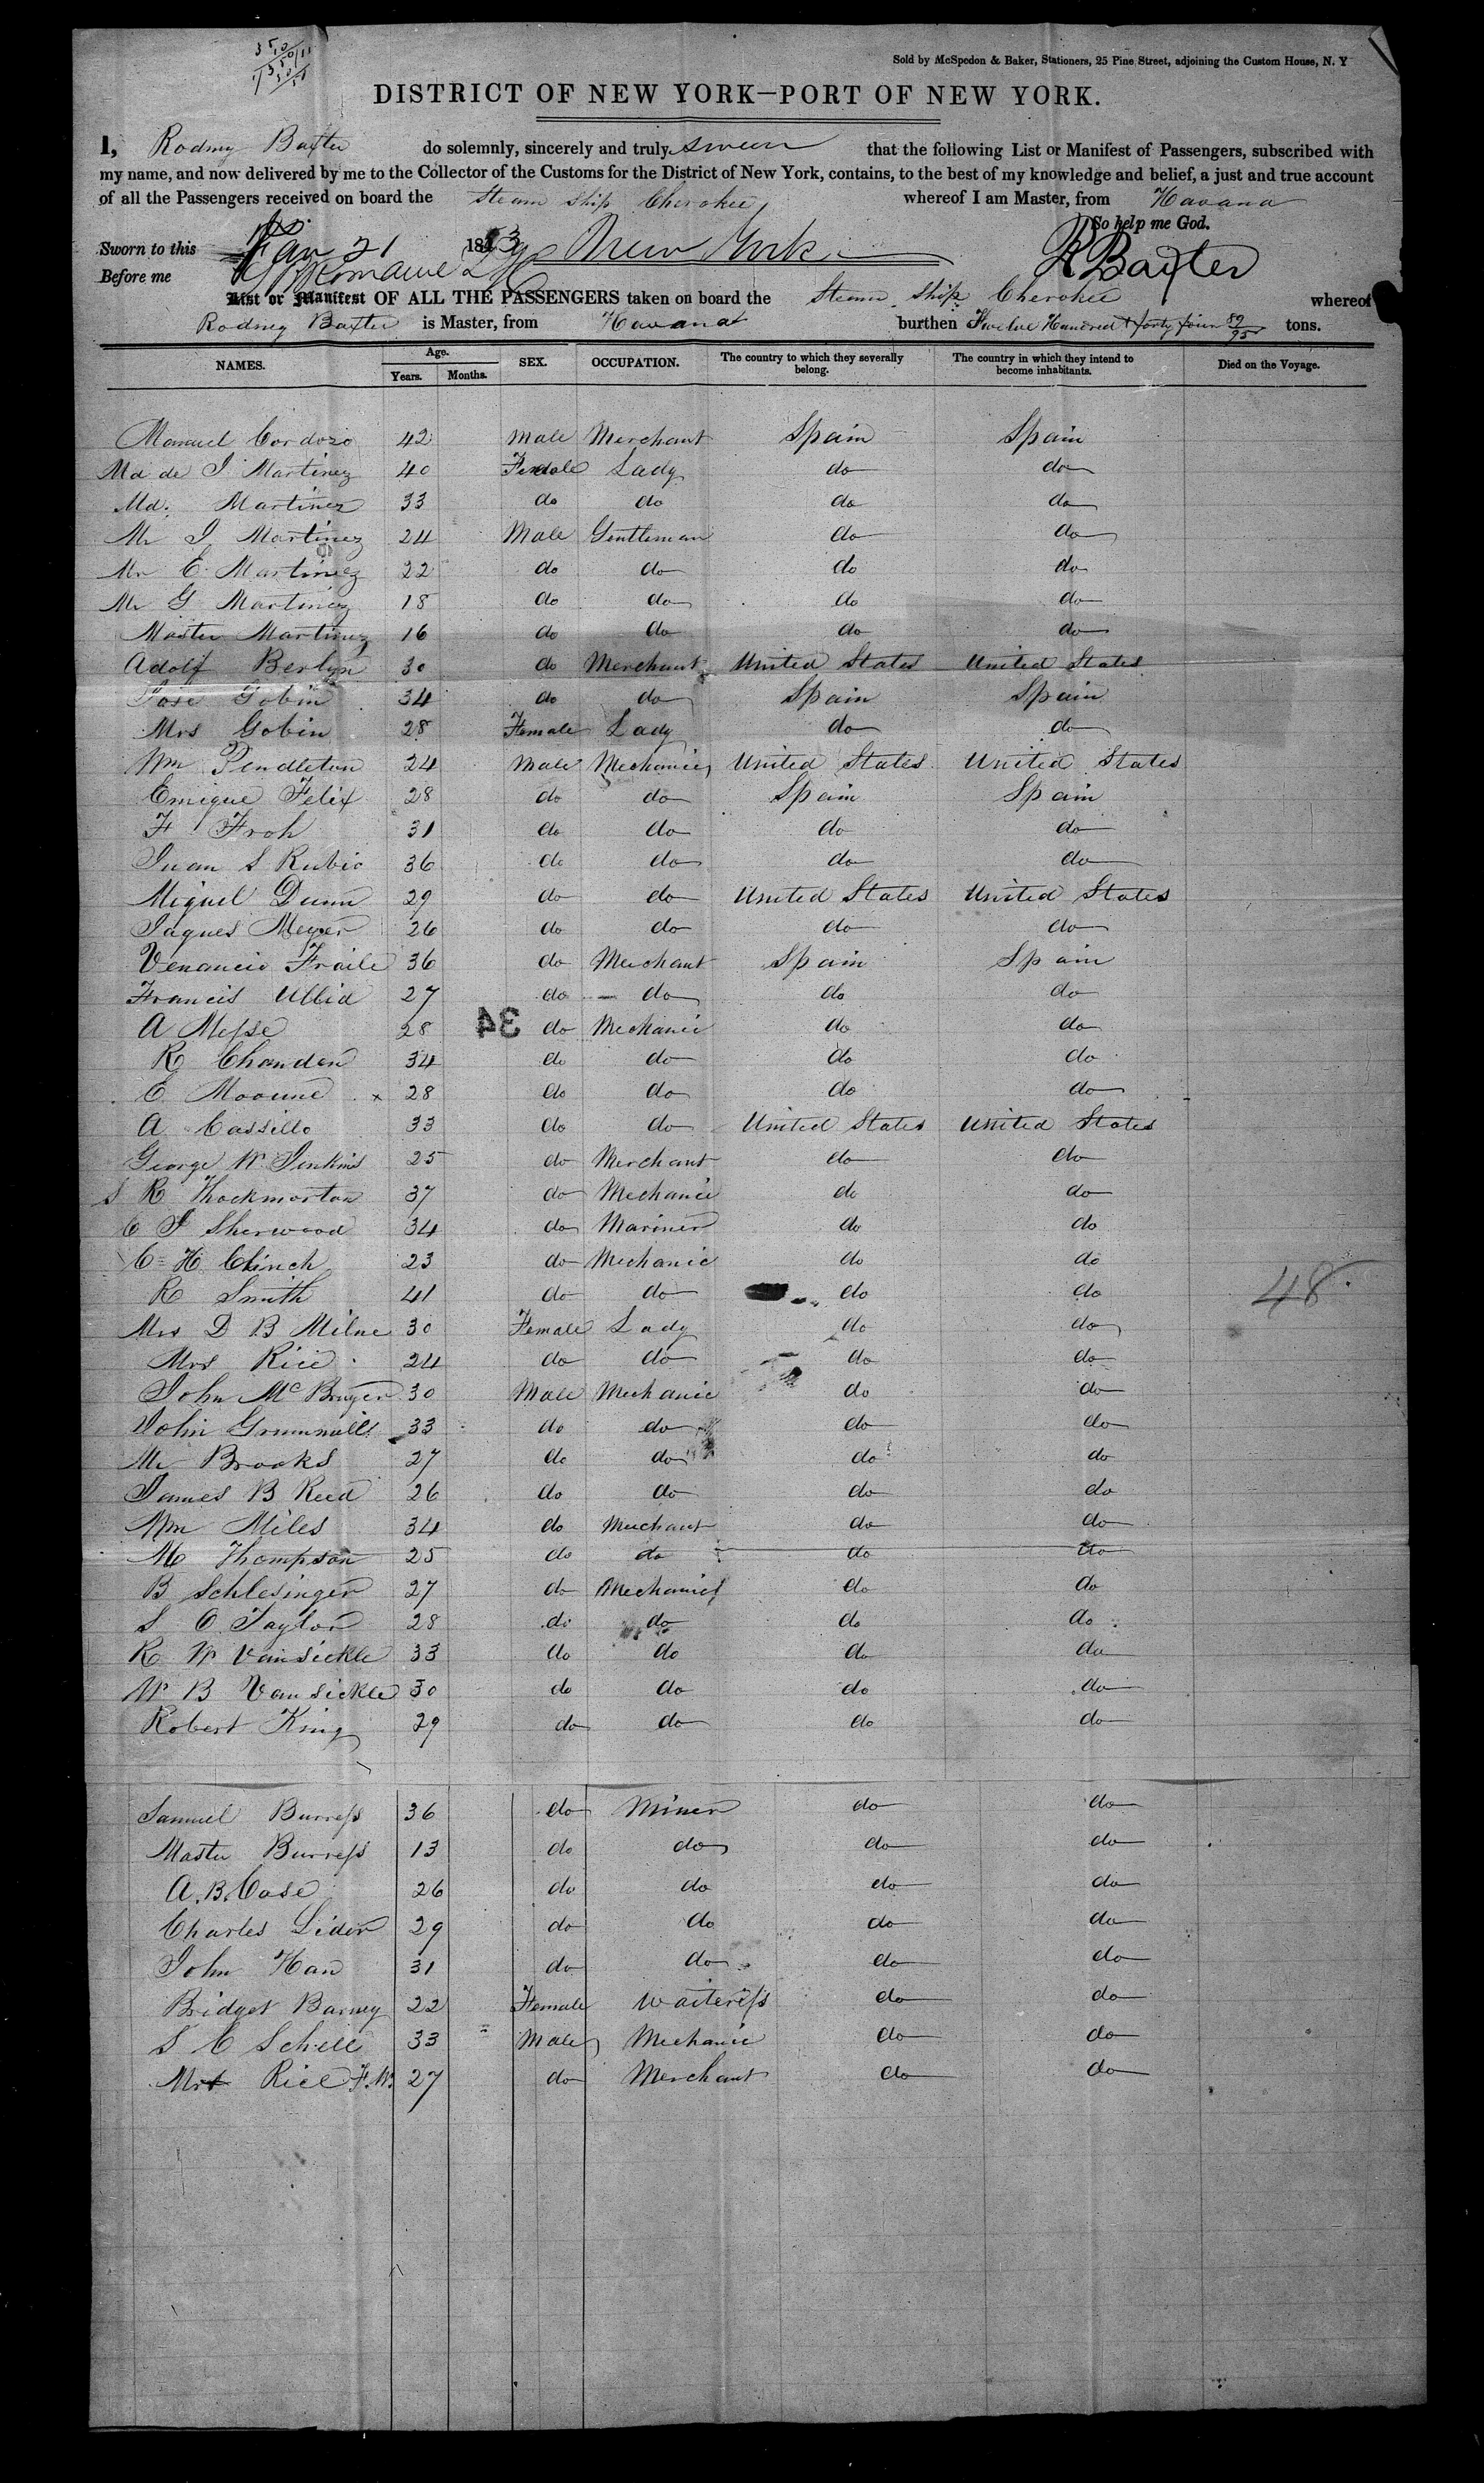 Sold by McSpedon & Baker, Stationers, 25 Pine Street, adjoining the Custom House, N. Y
DISTRICT OF NEW YORK—PORT OF NEW YORK.
I, Rodney Baxter do solemnly, sincerely and truly swear that the following List or Manifest of Passengers, subscribed with
my name, and now delivered by me to the Collector of the Customs for the District of New York, contains, to the best of my knowledge and belief, a just and true account
of all the Passengers received on board the Steam Ship Cherokee, whereof I am Master, from Havana
So help me God.
Sworn to this Jan 21 1853 New York R Baxter
Before me
List or Manifest OF ALL THE PASSENGERS taken on board the Steam Ship Cherokee whereof
Rodney Baxter is Master, from Havana burthen Twelve Hundred & forty four 89/95 tons.
NAMES. Age. Years. Months. SEX. OCCUPATION. The country to which they severally belong. The country in which they intend to become inhabitants. Died on the Voyage.
Manuel Cordozo 42 Male Merchant Spain Spain
Md de J Martinez 40 Female Lady do do
Md. Martinez 33 do do do do
Mr J Martinez 24 Male Gentleman do do
Mr E. Martinez 22 do do do do
Mr G Martinez 18 do do do do
Master Martinez 16 do do do do
Adolf Berlyn 30 do Merchant United States United States
Jose Gobin 34 do do Spain Spain
Mrs Gobin 28 Female Lady do do
Wm Pendleton 24 Male Mechanic United States United States
Emique Felix 28 do do Spain Spain
F Froh 31 do do do do
Juan S Rubio 36 do do do do
Miguel Dunn 29 do do United States United States
Jaques Meyer 26 do do do do
Venancio Fraile 36 do Merchant Spain Spain
Francis Ullia 27 do do do do
A Messe 28 34 do Mechanic do do
R Chanden 34 do do do do
E Mooune x 28 do do do do
A Cassillo 33 do do United States United States
George W. Jenkins 25 do Merchant do do
S R Thockmorton 37 do Mechanic do do
C J Sherwood 34 do Mariner do do
C H Clinch 23 do Mechanic do do
R Smith 41 do do do do 48
Mrs D B Milne 30 Female Lady do do
Mrs Rice 24 do do do do
John McBruyer 30 Male Mechanic do do
John 33 do do do do
Mr Brooks 27 do do do do
James B Reed 26 do do do do
Wm Miles 34 do Merchant do do
M Thompson 25 do do do do
B Schlesinger 27 do Mechanic do do
S O Taylor 28 do do do do
R W Vansickle 33 do do do do
W B Vansickle 30 do do do do
Robert King 29 do do do do
Samuel Burress 36 do Miner do do
Master Burress 13 do do do do
A. B. Case 26 do do do do
Charles Lider 29 do do do do
John Han 31 do do do do
Bridget Barney 22 Female Waiteress do do
S C Schell 33 Male Mechanic do do
Mr Rice F. W. 27 do Merchant do do